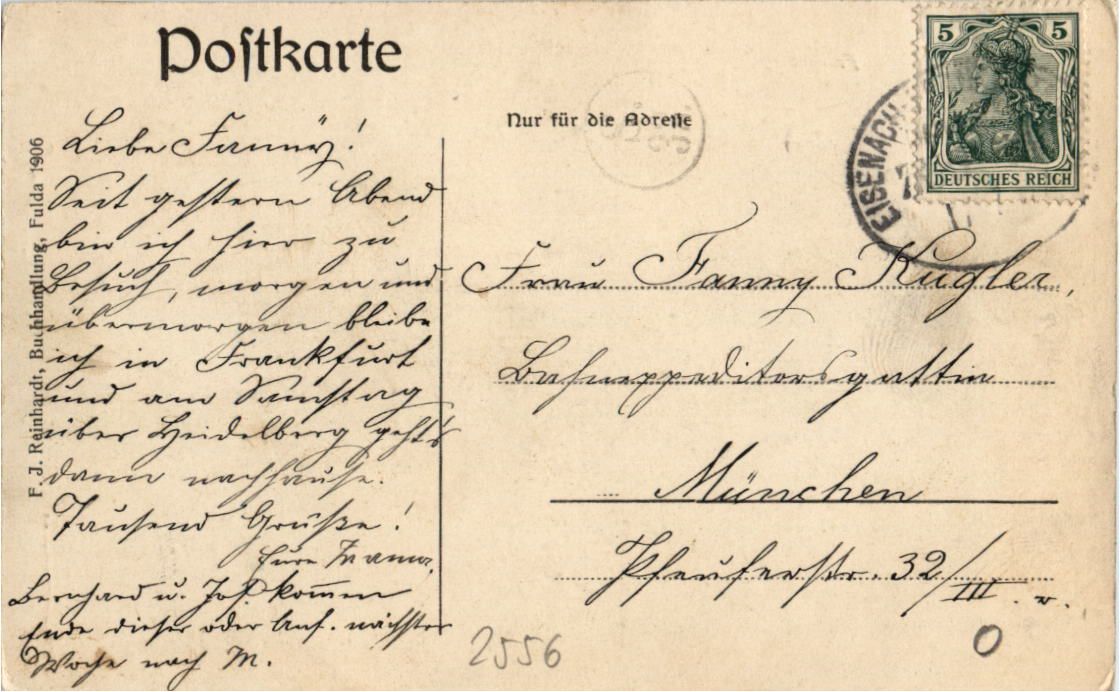 Postkarte
Nur für die Adresse
5 5
DEUTSCHES REICH
EISENACH
F. J. Reinhardt, Buchhandlung, Fulda 1906
Liebe Fanny!
Seit gestern Abend
bin ich hier zu
Besuch, morgen und
übermorgen bleibe
ich in Frankfurt
und am Samstag
über Heidelberg geht's
dann nachhause.
Tausend Grüße!
Eure Mama.
Bernhard u. Jos. kommen
Ende dieser oder Anf. nächster
Woche nach M.
Frau Fanny Kugler,
Bahnexpeditorsgattin
München
Pfeuferstr. 32/III. r.
2556
0